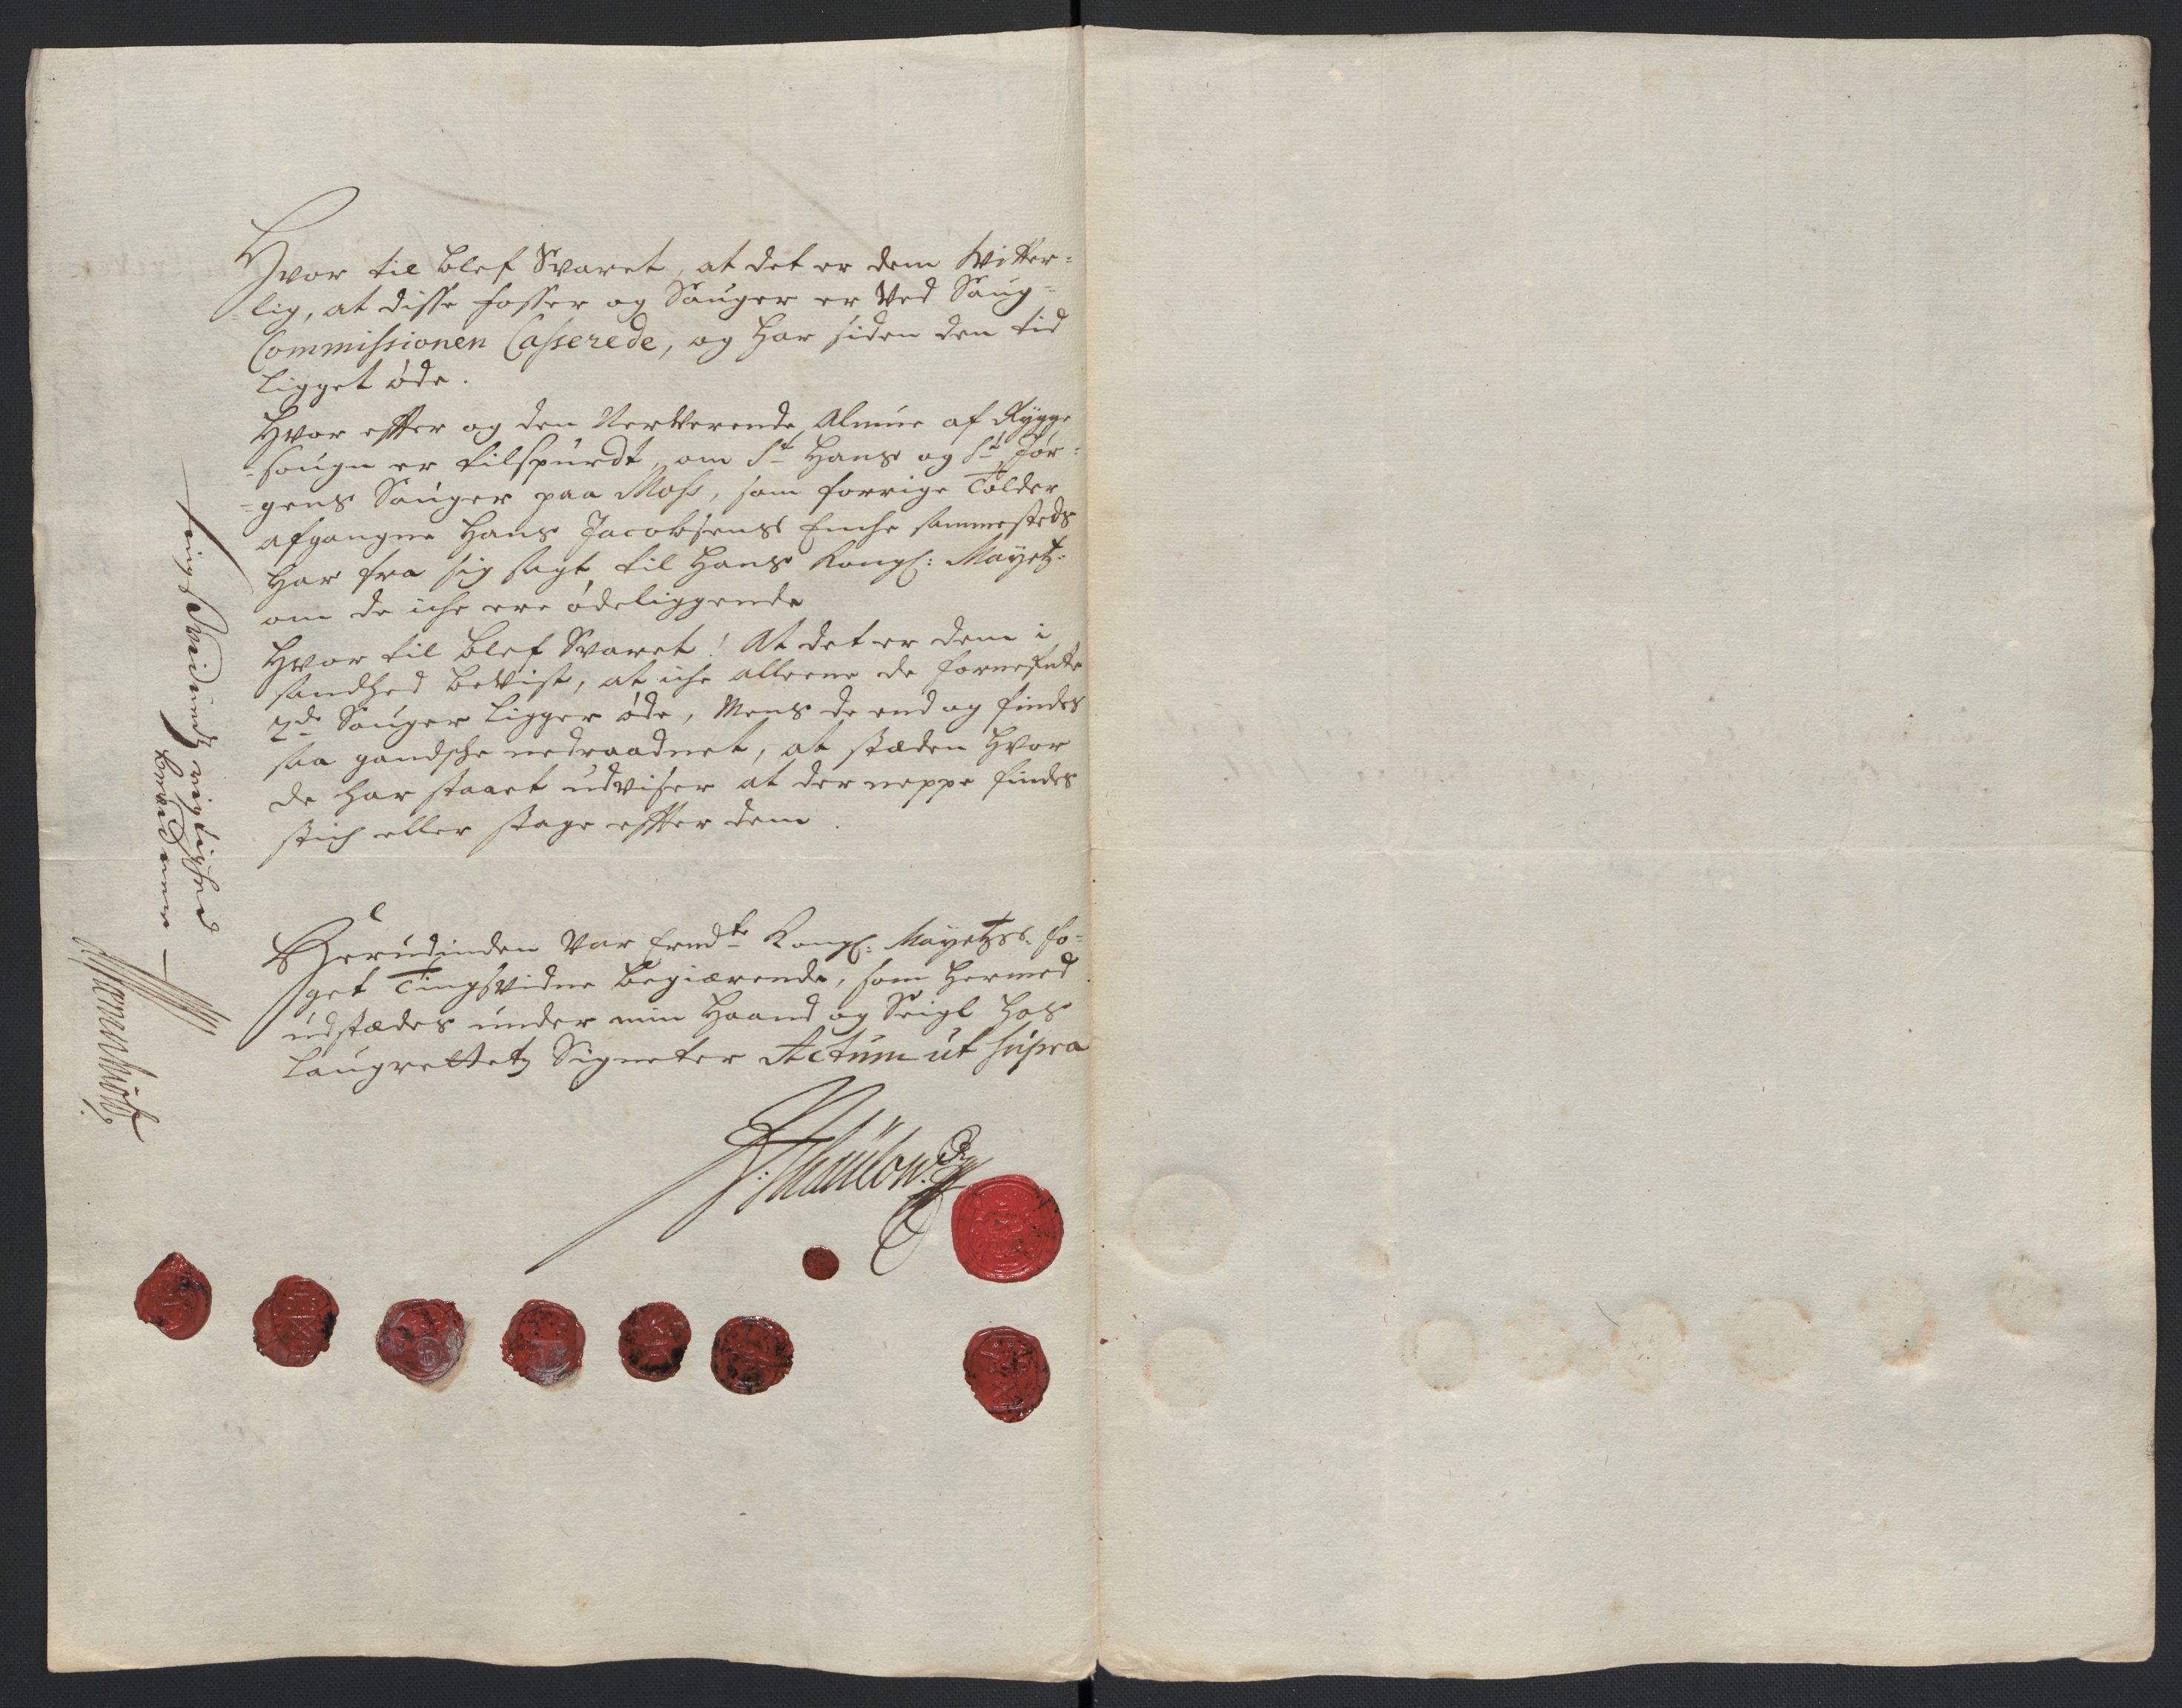 Hvor til blef Svaret, at det er dem Witter=
lig, at disse fosser og Sauger er Ved Saug=
Commissionen Casserede, og har siden den tid
ligget øde.
Hvor effter og den Nerverende Almue af Rygge
=sougn er tilspurdt, om St Hans og St Jør=
=gens Sauger paa Moss, som forrige Tolder
afgangne Hans Jacobsens Enche sammesteds
har fra sig sagt til Hans Kongl: Mayetz:
om de iche ere ødeliggende
Hvor til blef Svaret! At det er dem i
sandhed bevist, at iche alleene de fornefnte
2de Sauger ligger øde, Mens de end og findes
saa gandsche nedraadnet, at stæden hvor
de har staaet udviser at der neppe findes
stich eller stage effter dem.
Herudinden Var Ermdte Kongl: Mayetzs: fo=
get Tingsvidne begiærende, som hermed
udstædes under min Haand og Seigl hos
laugrettetz Signeter Actum ut supra
Thaulow
rigtighed